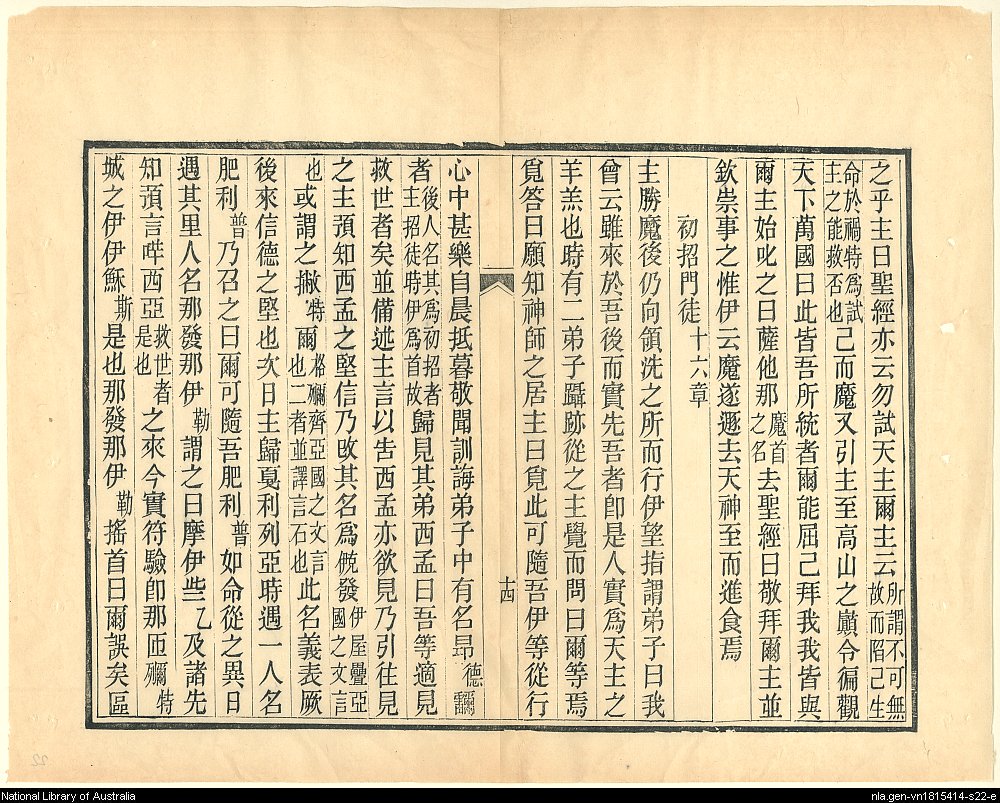 之乎主曰聖經亦云勿試天主爾主云所謂不可無故而陷己生
命於禍特為試主之能救否也己而魔又引主至高山之巔令徧觀
天下萬國曰此皆吾所統者爾能屈己拜我我皆與
爾主始叱之曰薩他那魔首之名去聖經曰敬拜爾主並
欽崇事之惟伊云魔遂遯去天神至而進食焉
初招門徒 十六章
主勝魔後仍向領洗之所而行伊望指謂弟子曰我
曾云雖來於吾後而實先吾者即是人實為天主之
羊羔也時有二弟子躡跡從之主覺而問曰爾等焉
覓答曰願知神師之居主曰覓此可隨吾伊等從行
十四
心中甚樂自晨抵暮敬聞訓誨弟子中有名昻德
者後人名其為初招者主招徒時伊為首故歸見其弟西孟曰吾等適見
救世者矣並備述主言以告西孟亦欲見乃引往見
之主預知西孟之堅信乃改其名為發伊屋疊亞國之文言
也或謂之撇特爾格彌齊亞國之文言也二者並譯言石也此名義表厥
後來信德之堅也次日主歸戛利列亞時遇一人名
肥利普乃召之曰爾可隨吾肥利普如命從之異日
遇其里人名那發那伊勒謂之曰摩伊些乙及諸先
知預言哶西亞救世者是也之來今實符驗即那匝特
城之伊伊穌斯是也那發那伊勒搖首曰爾誤矣區
National Library of Australia
nla.gen-vn1815414-s22-e